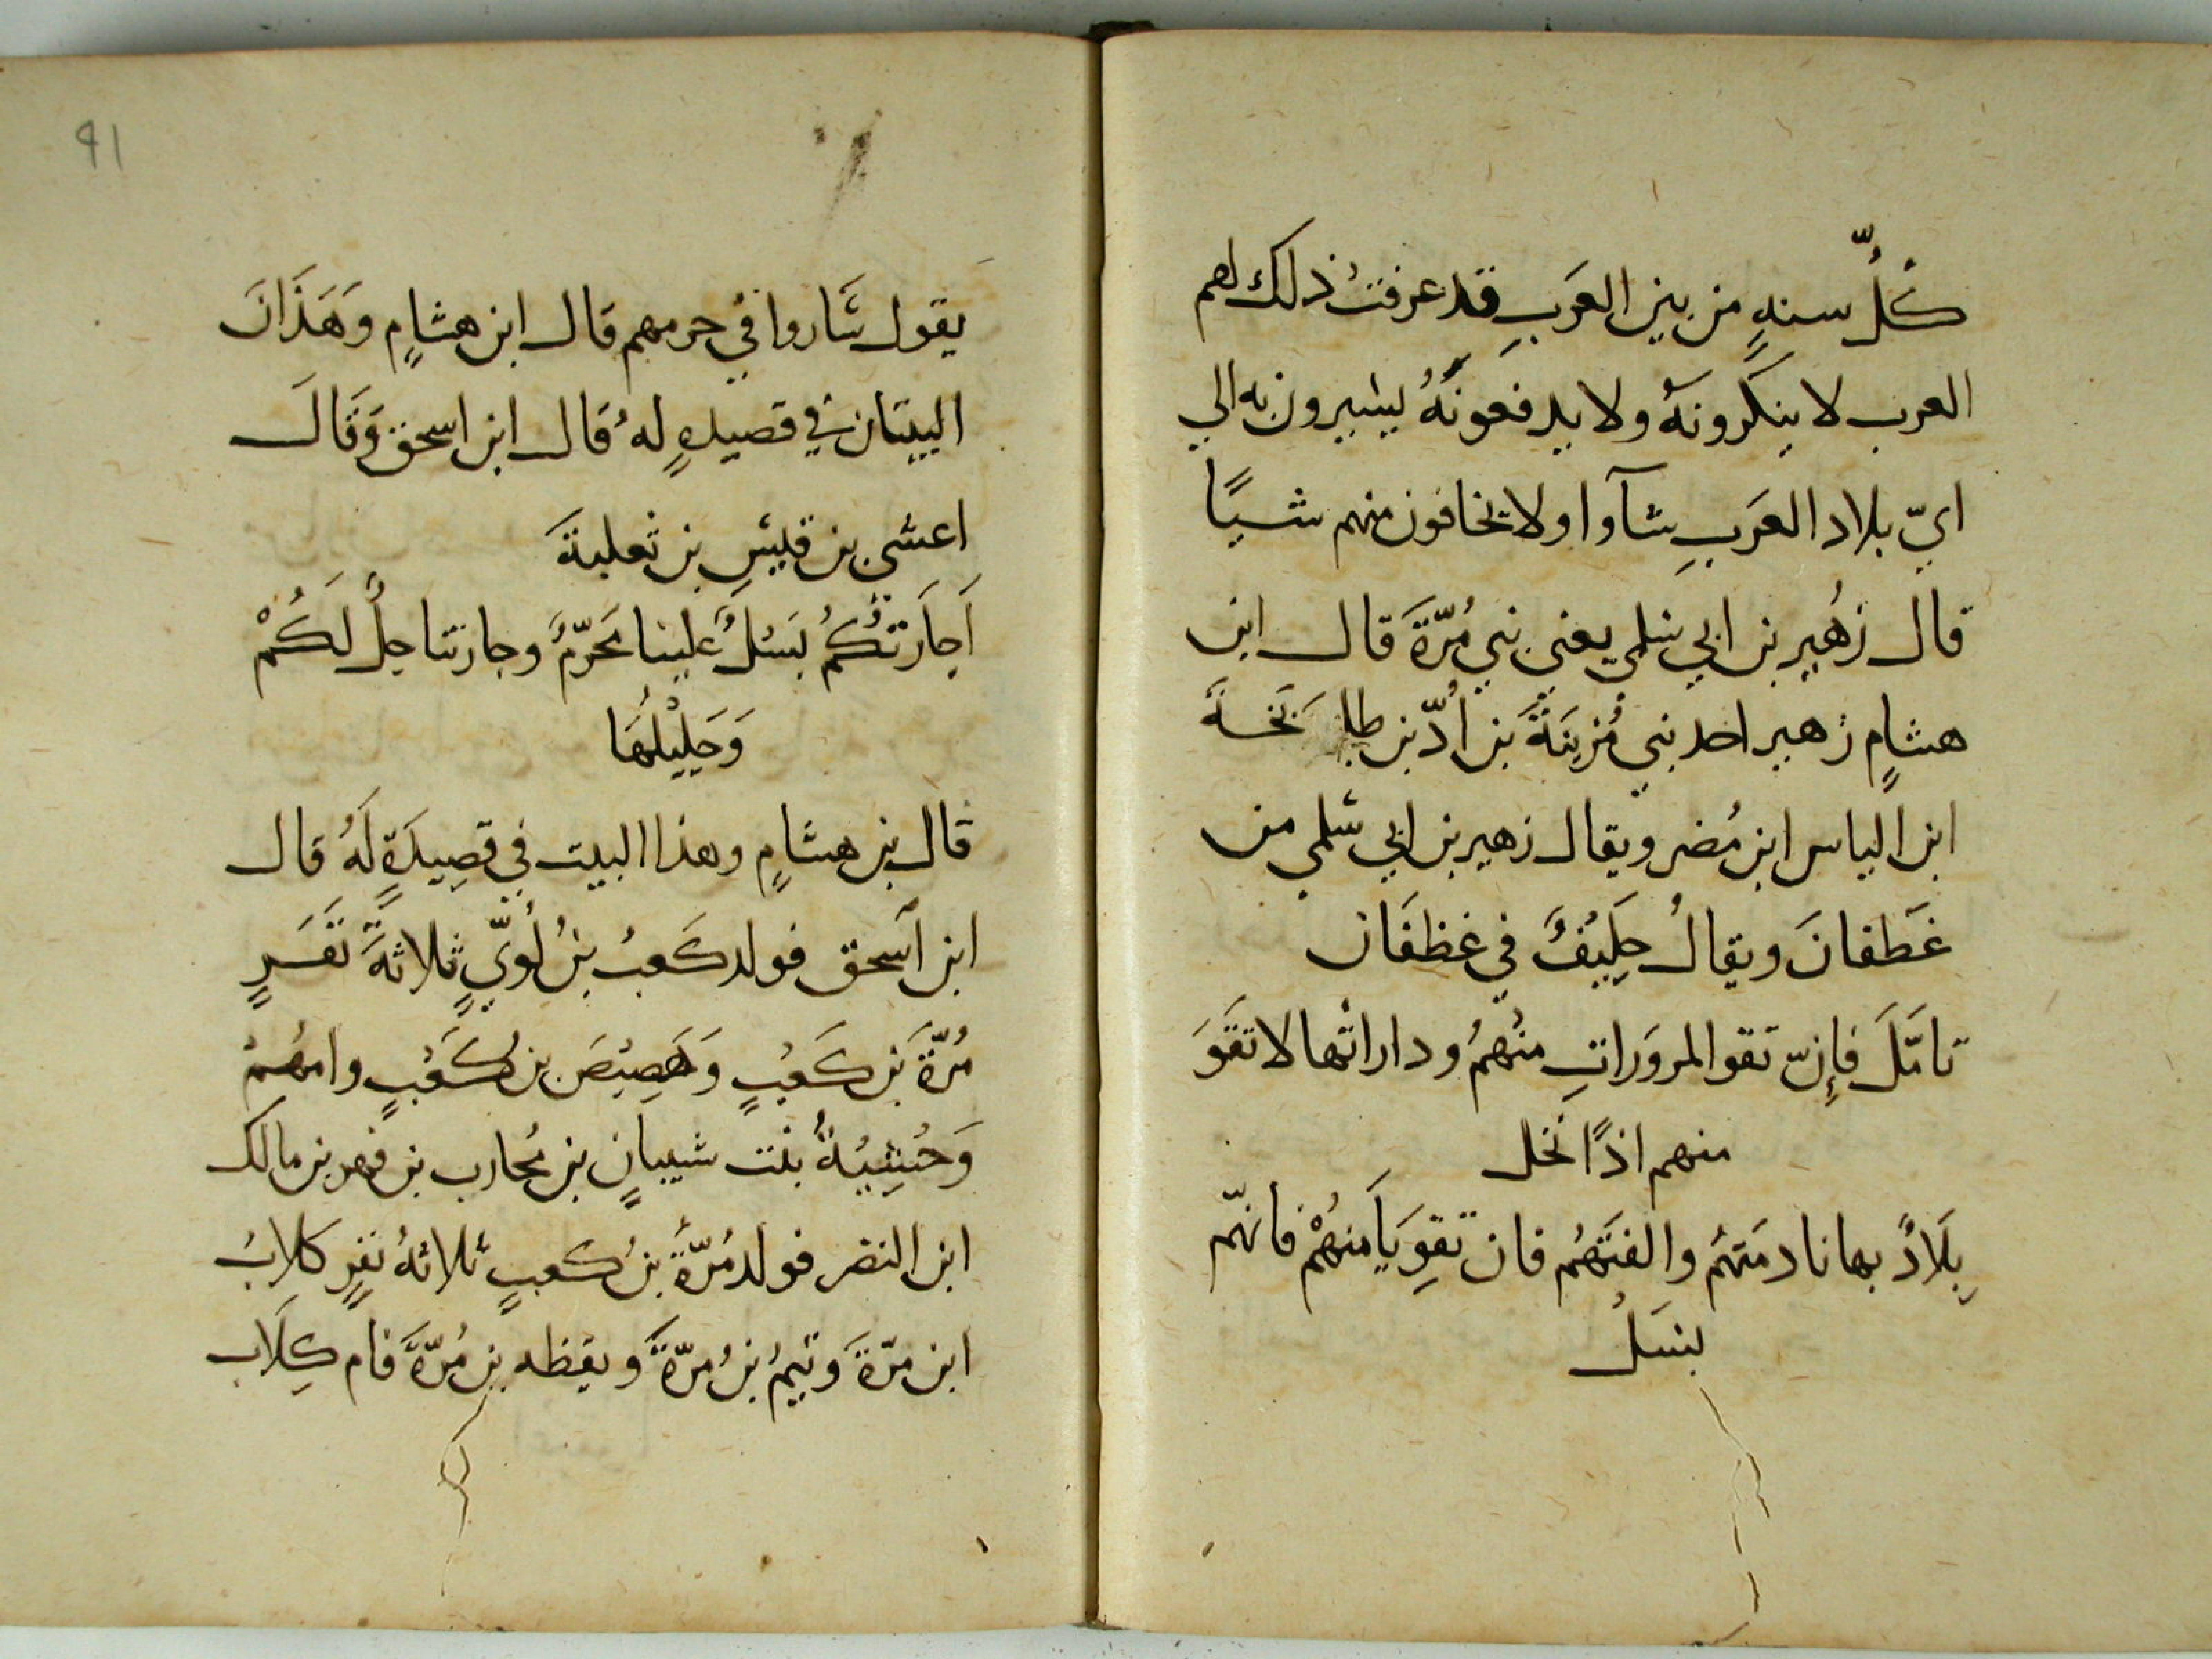 كُلّ سنهٍ من بين العَربِ قد عرفتُ ذلك لهم
العرب لا ينكرونهُ ولا يدفعونَهُ يسيرون به الي
ايّ بلاد العَربِ شآوا ولا يخافون منهم شيًا
قال زُهير بن ابي سلمي يعنى بني مُرّةَ قال ابن
هشامٍ زهير احد بني مُزينَةَ بن اُدّ بن طابخةَ
ابن الياس ابن مُضر ويقال زهير بن ابي سلمي من
غَطفانَ ويقالُ حَلِيفٌ في غطفَان
تامَّلَ فإنّ تقو المرورَاتِ منهُمُ وداراتها لا تقوَ
منهم اذًا نخل
بِلَادٌ بها نادمتهُم والفتَهُم فان تقوِيَا منهُمْ فانهّم
بسلُ
91
يقول سَاروا في حرمهم قال ابن هشامٍ وَهَذَانَ
البيتان في قصيدهٍ لهُ قال ابن اسحق وَقَالَ
اعشي بن قيسِ بن ثعلبةَ
اَجَارَتُكُمُ بَسْلٌ علينا مُحَرّمٌ وجارتنا حِلٌّ لَكُمْ
وَحَلِيْلُهَا
قال بن هشامٍ وهذا البيت في قصِيدَةٍ لَهُ قال
ابن اسحق فولد كَعبُ بنُ لُويٍّ ثلاثةَ نَفَرٍ
مُرّةَ بن كَعبٍ وَهَصِيصَ بن كَعْبٍ وامهُمْ
وَحْشِيةُ بنت شيبانٍ بن مُحارب بن فهر بن مالك
ابن النضر فولد مُرّةُ بنُ كعبٍ ثلاثهُ نفرٍ كلابُ
ابن مرّةَ وتيمُ بنُ مرّةَ ويقظه بن مُرّةَ فام كِلَاب